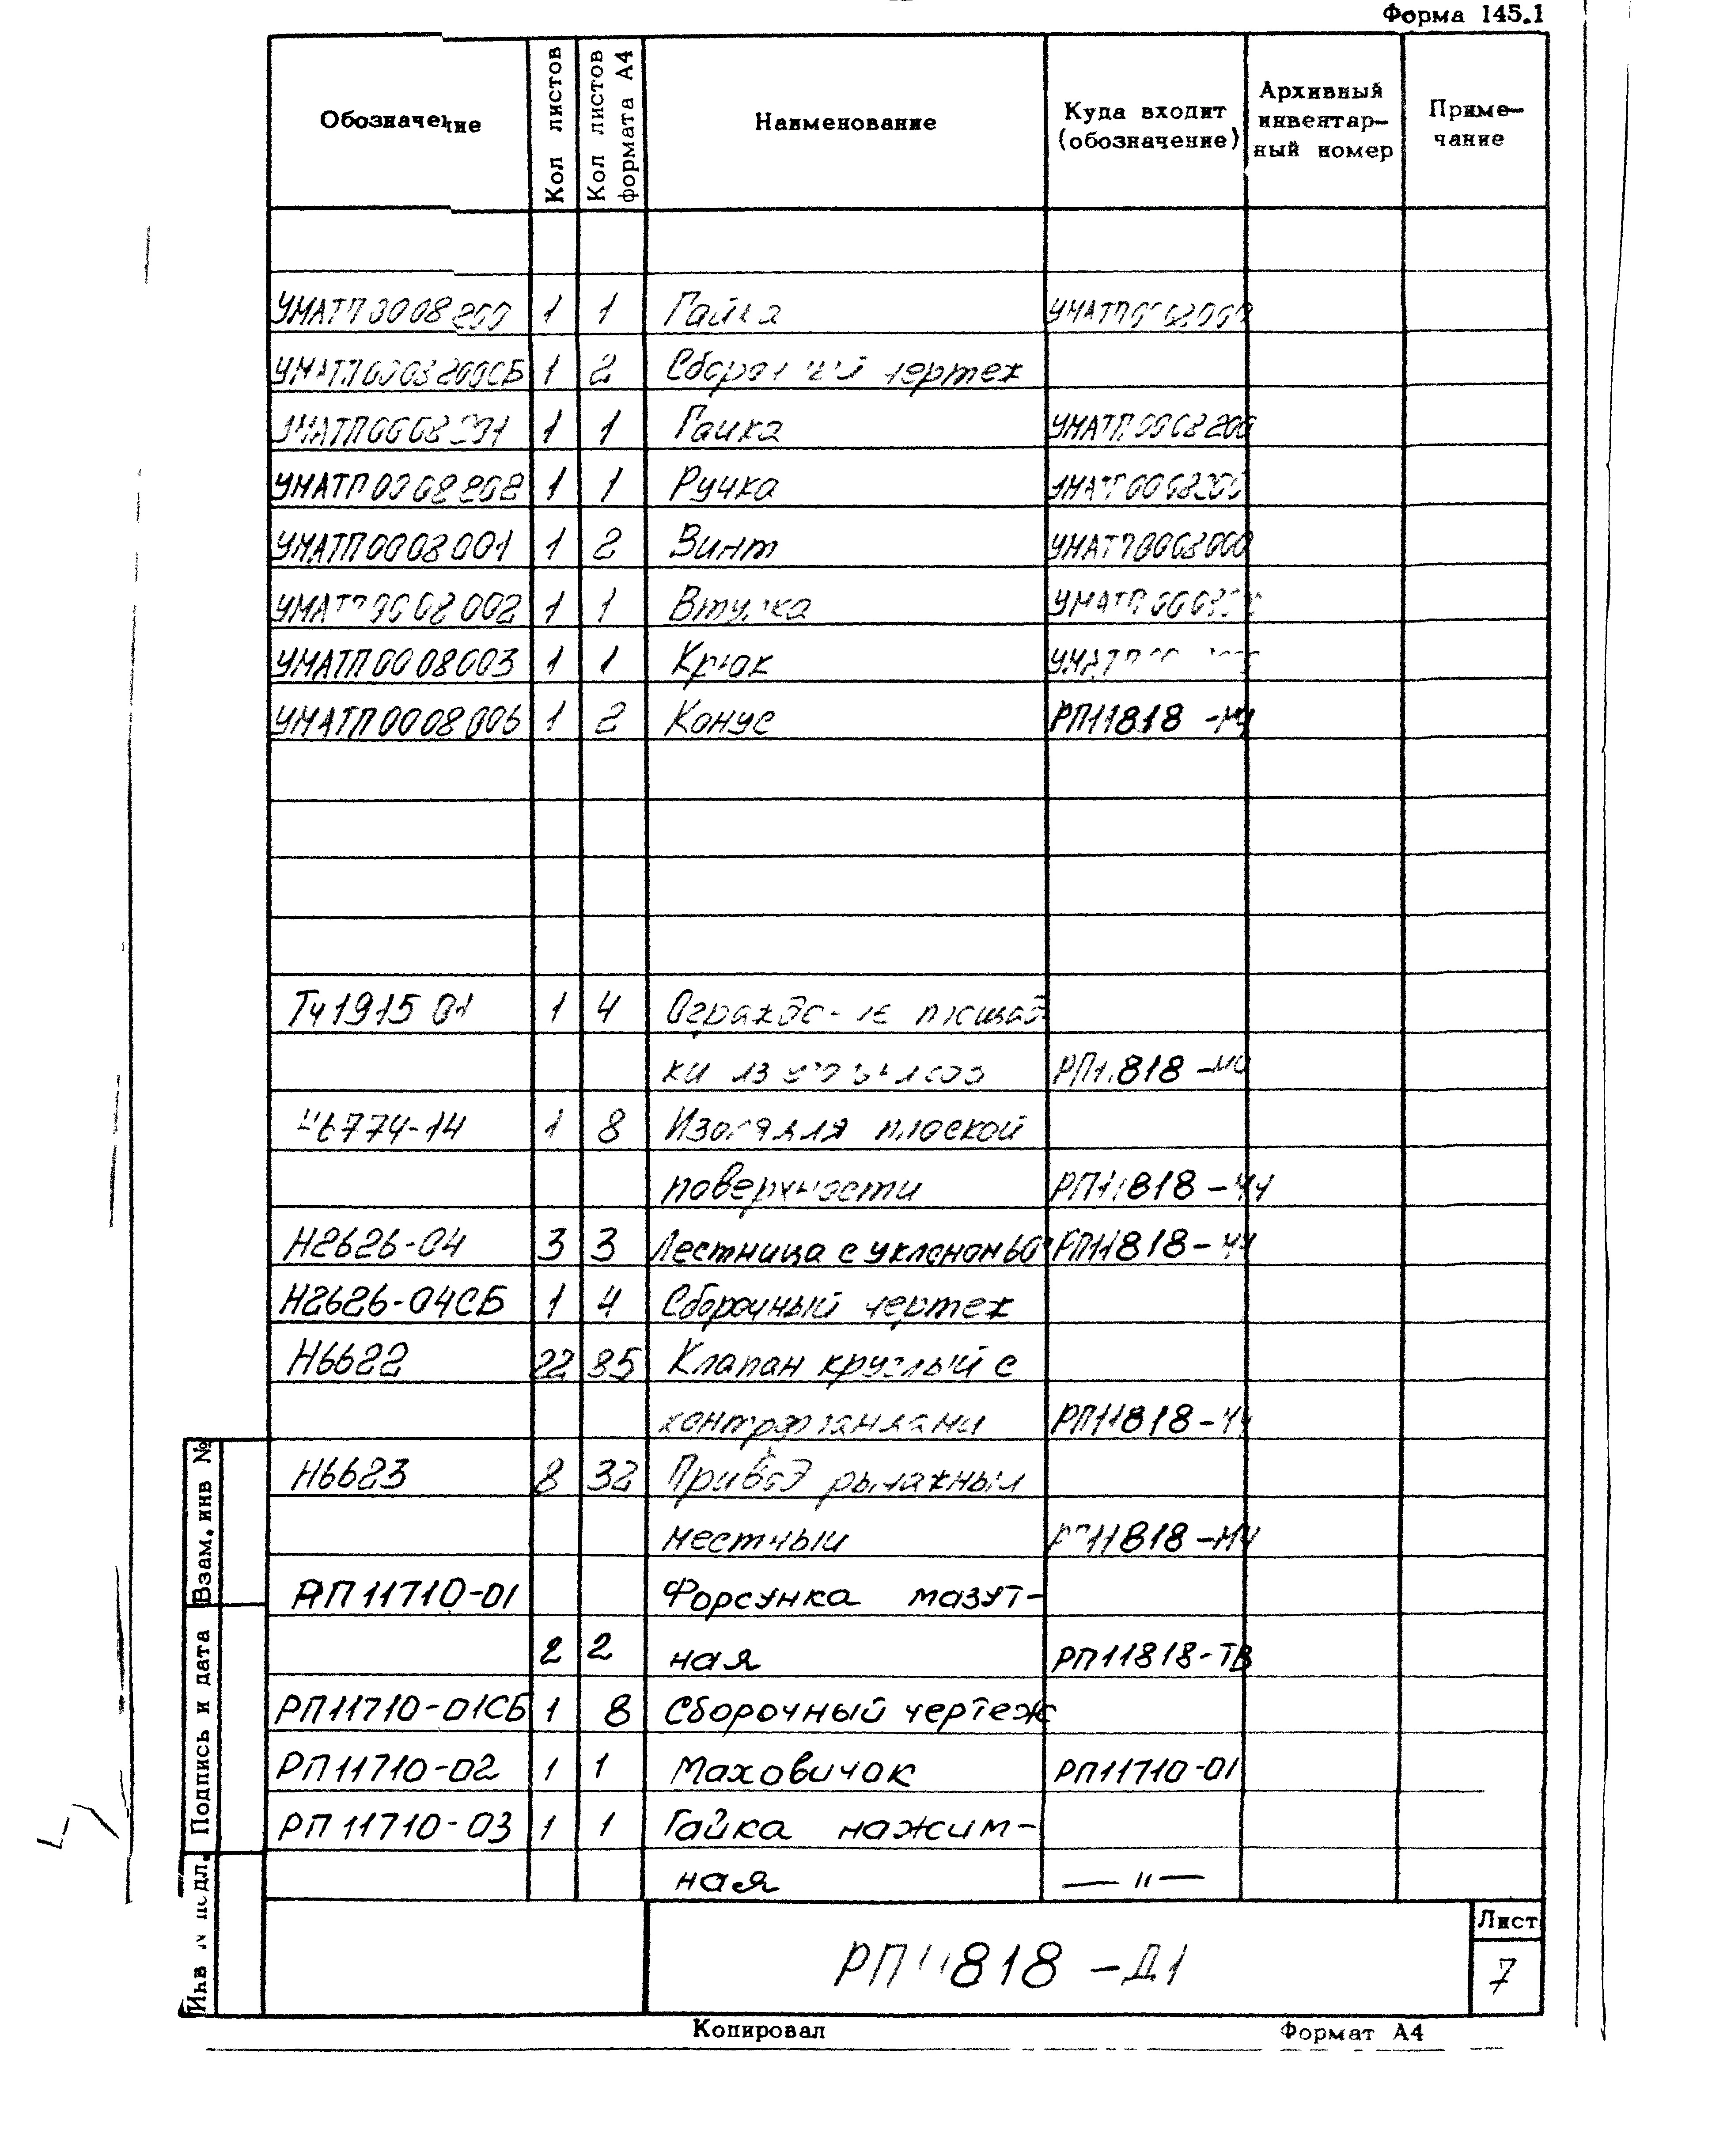 Форма 145.1
Обозначение Кол листов Кол листов формата А4 Наименование Куда входит (обозначение) Архивный инвентарный номер Примечание
УМАТП0008200 1 1 Гайка УМАТП0008000
УМАТП0008200СБ 1 2 Сборочный чертеж
УМАТП0008201 1 1 Гайка УМАТП0008200
УМАТП0008202 1 1 Ручка УМАТП0008200
УМАТП0008001 1 2 Винт УМАТП0008000
УМАТП0008002 1 1 Втулка
УМАТП0008003 1 1 Крюк
УМАТП0008006 1 2 Конус РП11818-МЧ
ТЧ1915 01 1 4 Ограждение площад
ки из РП11818-МЧ
1 8 Изоляция плоской
поверхности РП11818-МЧ
Н2626-04 3 3 Лестница с уклоном 60° РП11818-МЧ
Н2626-04СБ 1 4 Сборочный чертеж
Н6622 22 35 Клапан круглый с
контрфланцами РП11818-МЧ
Н6623 8 32 Привод рычажный
местный РП11818-МЧ
РП11710-01 Форсунка мазут-
2 2 ная РП11818-ТВ
РП11710-01СБ 1 8 Сборочный чертеж
РП11710-02 1 1 Маховичок РП11710-01
РП11710-03 1 1 Гайка нажим-
ная — " —
Взам. инв №
Подпись и дата
Инв № подл.
РП11818-Д1
Лист
7
Копировал Формат А4